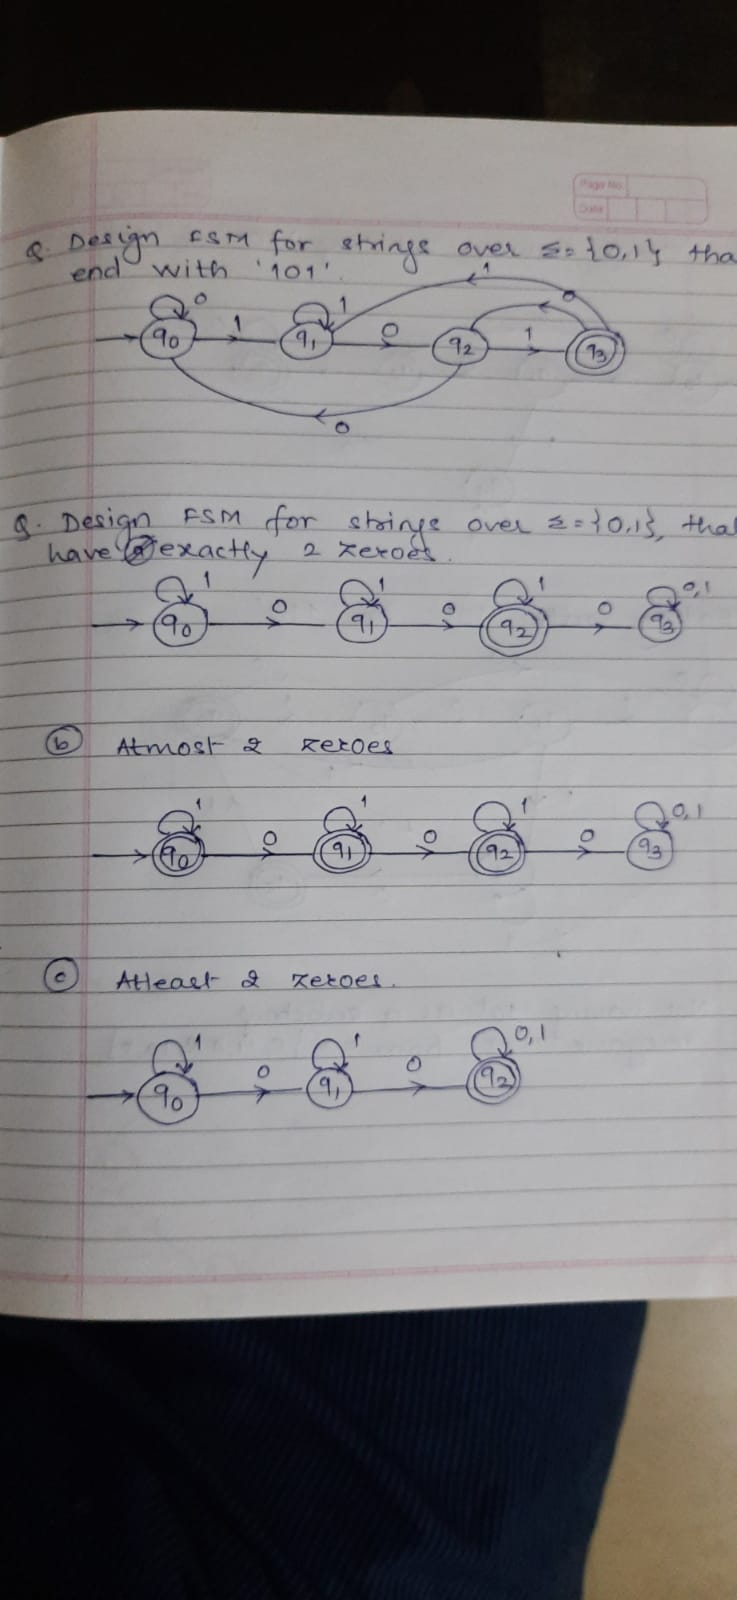 Page No.
Date
Q. Design FSM for strings over Σ = {0,1} tha
end with '101'.
0 1 1 0 1 1 0
q0 q1 q2 q3
0
Q. Design FSM for strings over Σ = {0,1}, that
have (a) exactly 2 zeroes.
1 0 1 0 1 0 0,1
q0 q1 q2 q3
(b) Atmost 2 zeroes
1 0 1 0 1 0 0,1
q0 q1 q2 q3
(c) Atleast 2 zeroes.
1 0 1 0 0,1
q0 q1 q2